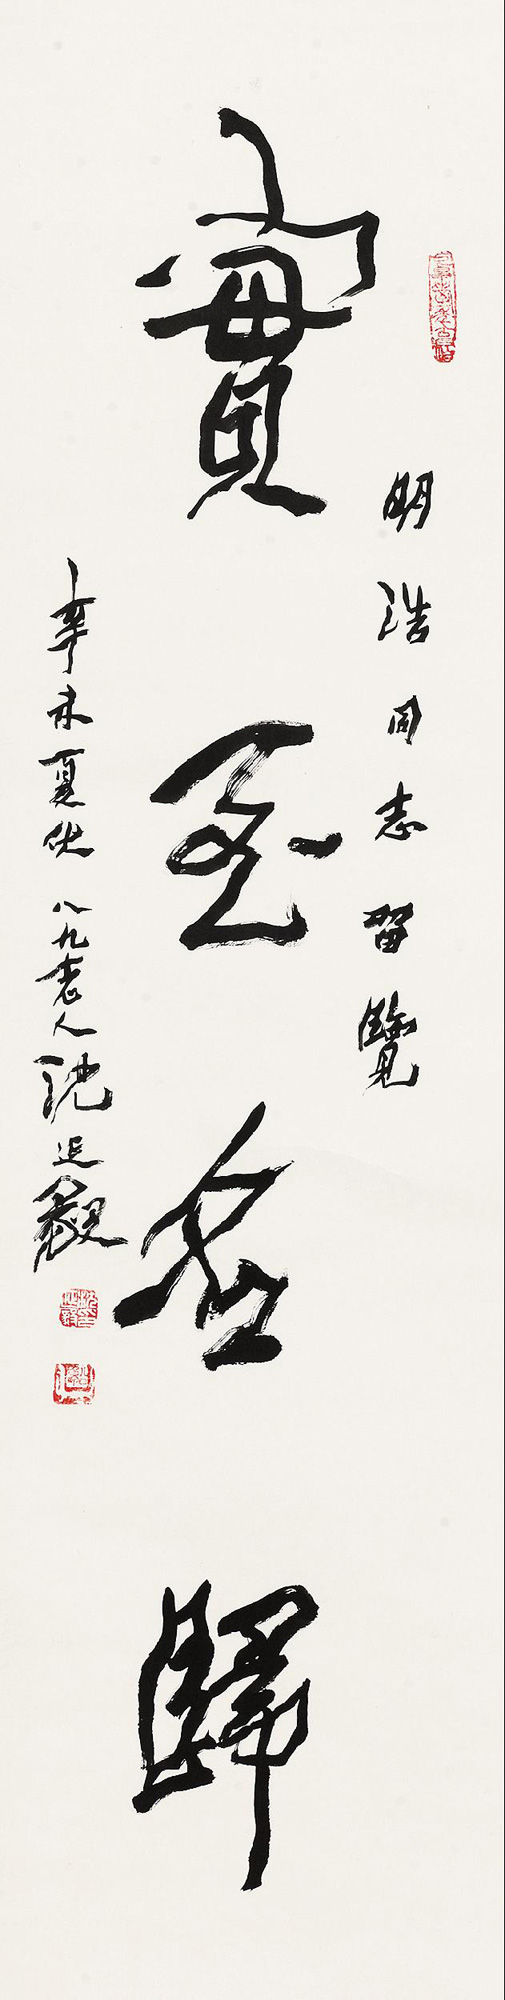 明浩同志留覽
實至名歸
辛未夏伏八九老人沈延毅